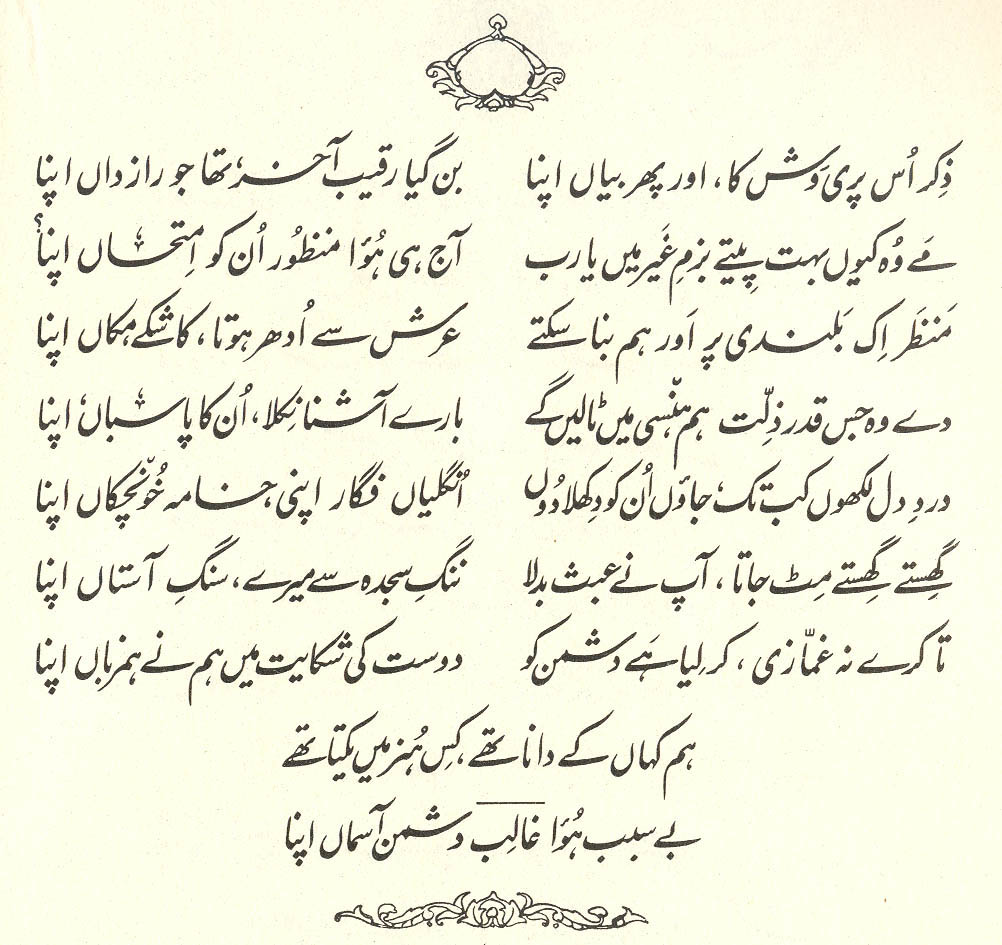 ذِکر اُس پری وَش کا، اور پھر بیاں اپنا بن گیا رقیب آخر، تھا جو رازداں اپنا
مَے وُہ کیوں بہت پِیتے بزمِ غَیر میں یا رب آج ہی ہُوٴا منظُور اُن کو اِمتحاں اپنا؟
مَنظَر اِک بَلندی پر اَور ہم بنا سکتے عرش سے اُدھر ہوتا، کاشکے مکاں اپنا
دے وہ جس قدر ذِلّت ہم ہنْسی میں ٹالیں گے بارے آشنا نِکلا، اُن کا پاسباں، اپنا
دردِ دل لکھوں کب تک، جاؤں اُن کو دِکھلا دُوں اُنگلیاں فگار اپنی، خامہ خُونچکاں اپنا
گھِستے گھِستے مِٹ جاتا، آپ نے عبث بدلا ننگِ سجدہ سے میرے، سنگِ آستاں اپنا
تا کرے نہ غمّازی، کر لِیا ہَے دشمن کو دوست کی شکایت میں ہم نے ہمزباں اپنا
ہم کہاں کے دانا تھے، کِس ہُنر میں یکتا تھے
بے سبب ہُوٴا غالِب دشمن آسماں اپنا